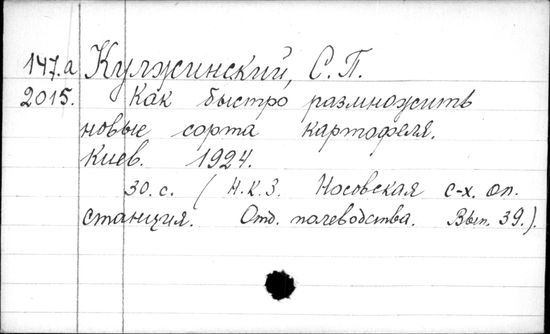 147.а Кулжинский, С.П.
2015. Как быстро размножить
новые сорта картофеля.
Киев. 1924.
30.с. (Н.К.З. Носовская с-х. оп.
станция. Отд. полеводства. Вып. 39.).